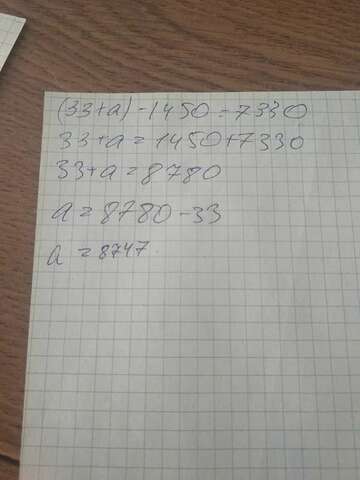 (33+a)-1450=7330
33+a=1450+7330
33+a=8780
a=8780-33
a=8747